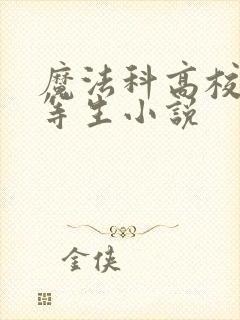 魔法科高校
等生小説
金侠